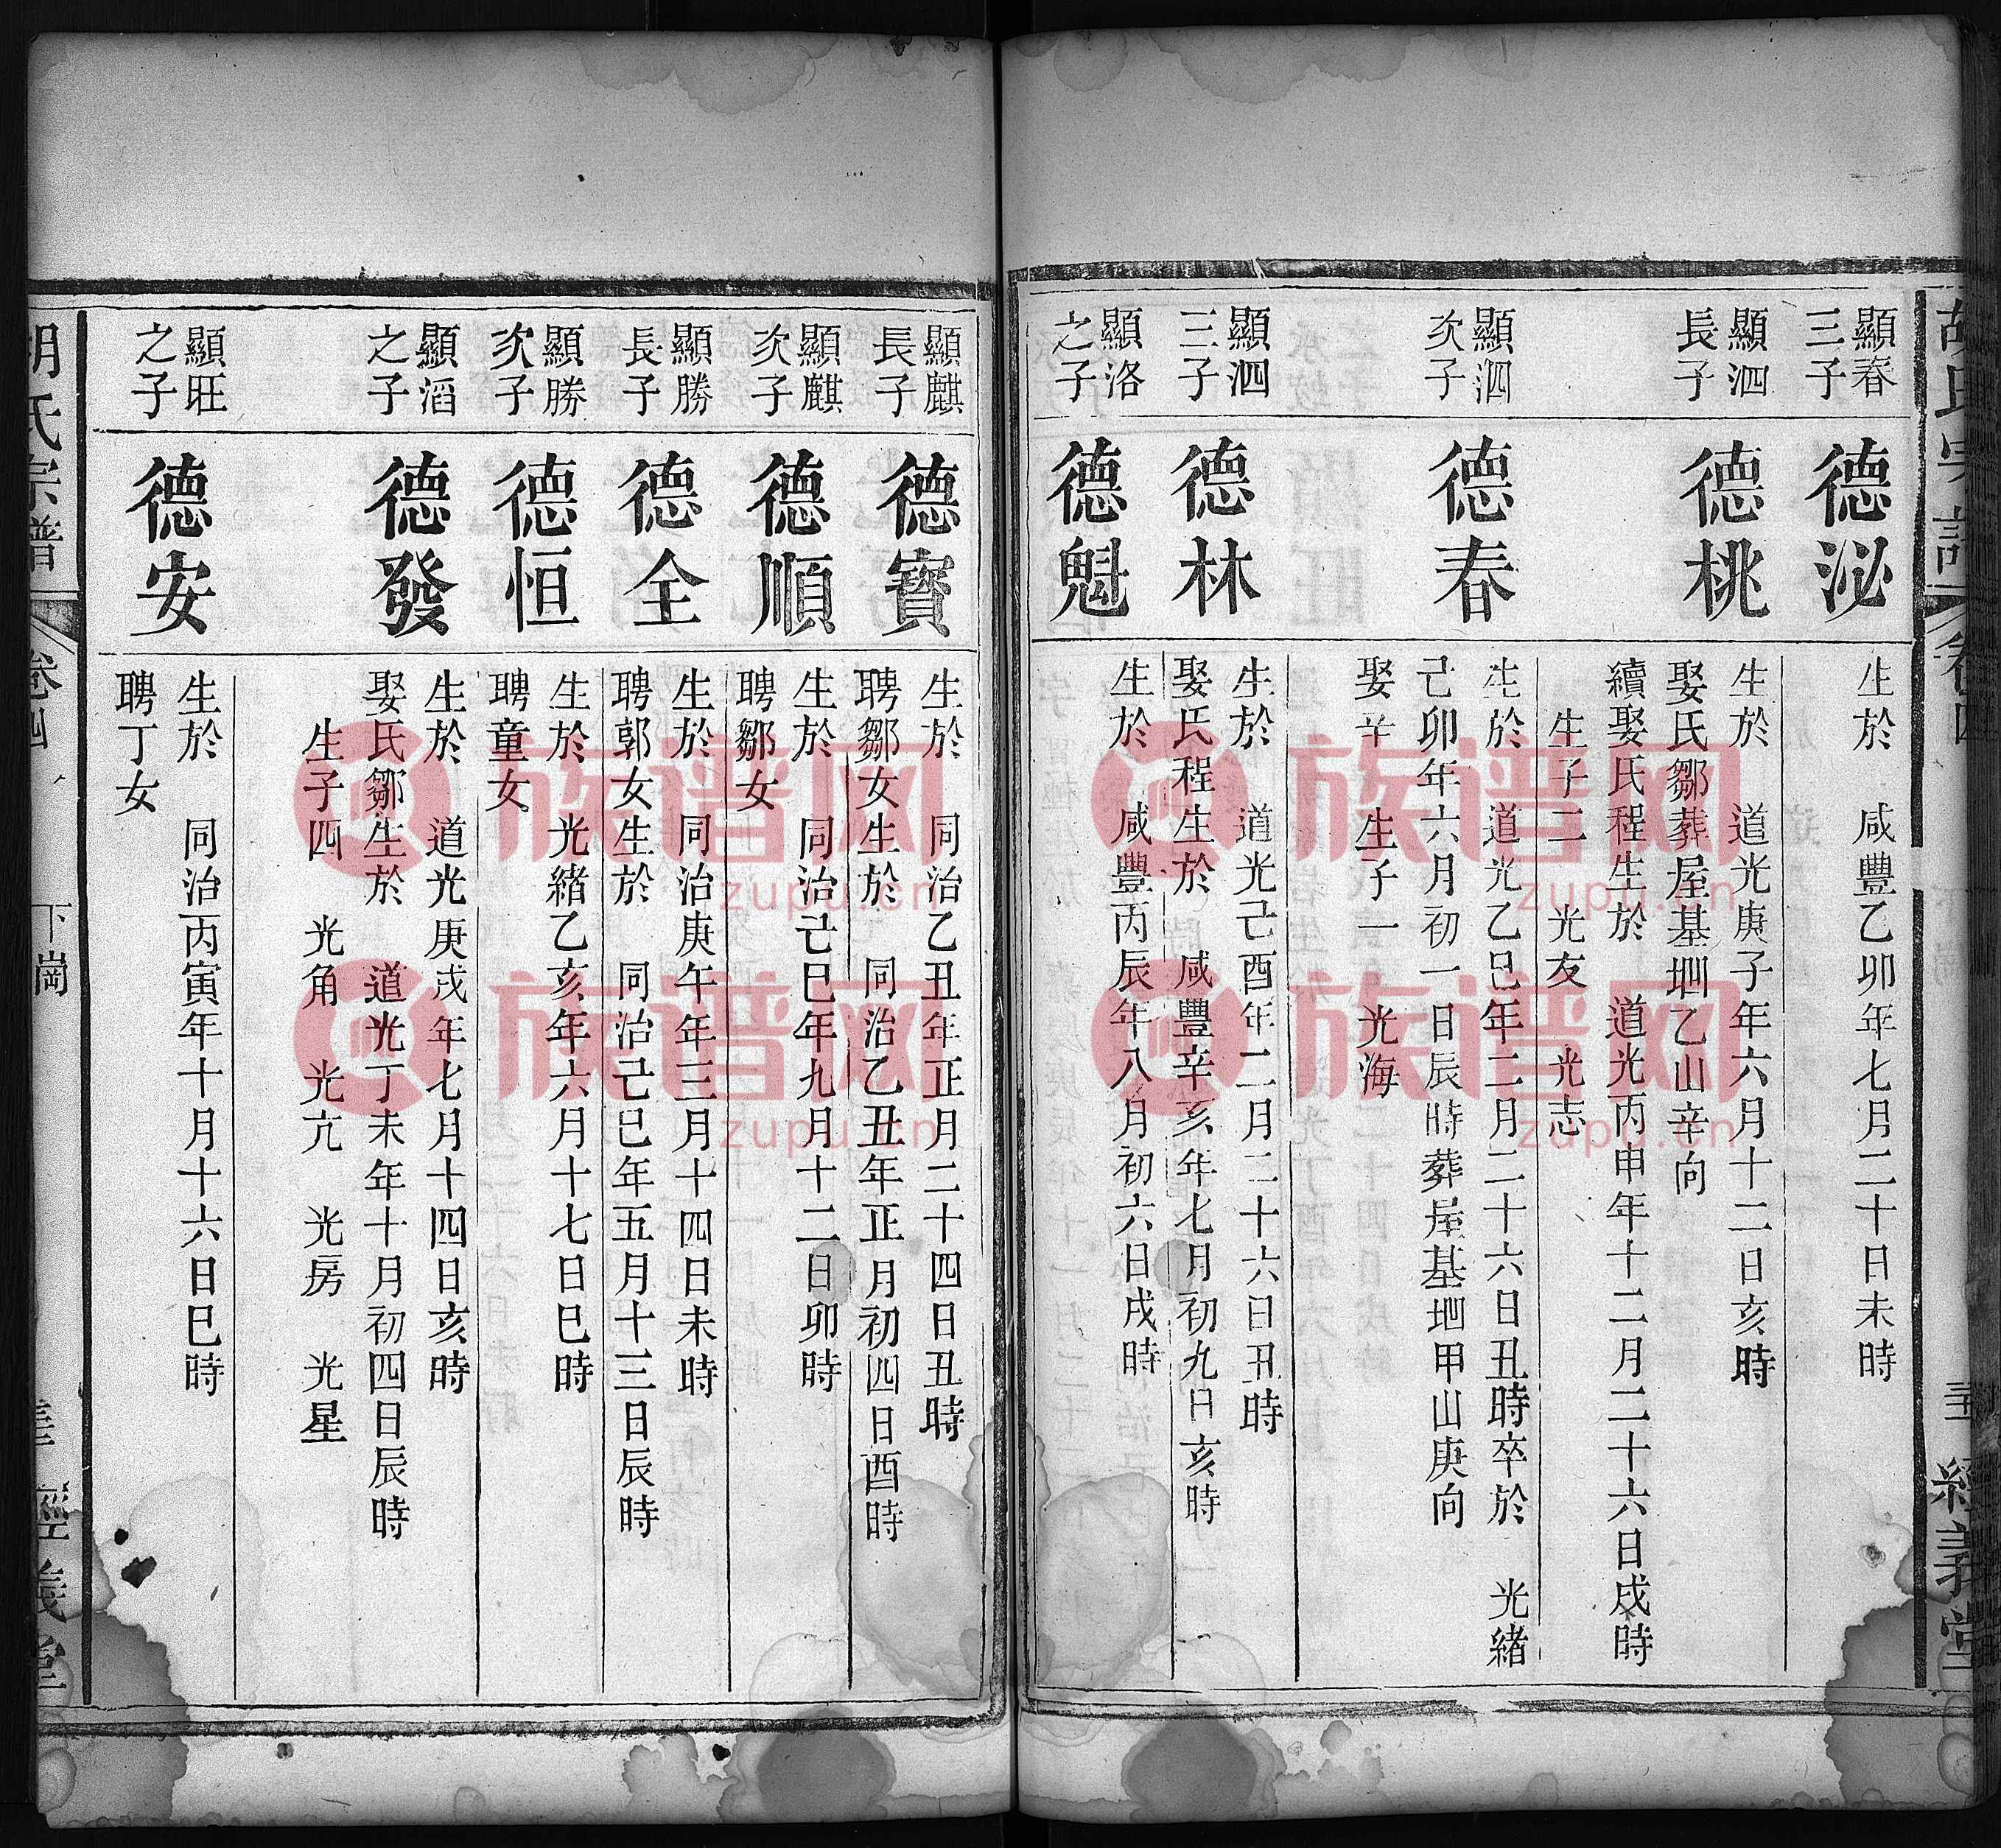 胡氏宗譜
卷四
經義堂
顯春
三子
德泌
生於 咸豐乙卯年七月二十日未時
顯泗
長子
德桃
生於 道光庚子年六月十二日亥時
娶氏鄒葬屋基𡉏乙山辛向
續娶氏程生於 道光丙申年十二月二十六日戍時
生子二 光友 光志
顯泗
次子
德春
生於 道光乙巳年二月二十六日丑時卒於 光緒
己卯年六月初一日辰時葬屋基𡉏甲山庚向
娶 生子一 光海
顯泗
三子
德林
生於 道光己酉年二月二十六日丑時
娶氏程生於 咸豐辛亥年七月初九日亥時
顯洛
之子
德魁
生於 咸豐丙辰年八月初六日戌時
顯麒
長子
德寶
生於 同治乙丑年正月二十四日丑時
聘鄒女生於 同治乙丑年正月初四日酉時
顯麒
次子
德順
生於 同治己巳年九月十二日卯時
聘鄒女
顯勝
長子
德全
生於 同治庚午年三月十四日未時
聘郭女生於 同治己巳年五月十三日辰時
顯勝
次子
德恒
生於 光緒乙亥年六月十七日巳時
聘童女
顯滔
之子
德發
生於 道光庚戌年七月十四日亥時
娶氏鄒生於 道光丁未年十月初四日辰時
生子四 光角 光亢 光房 光星
顯旺
之子
德安
生於 同治丙寅年十月十六日巳時
聘丁女
胡氏宗譜
卷四
下崗
經義堂
族谱网
zupu.cn
族谱网
zupu.cn
族谱网
zupu.cn
族谱网
zupu.cn